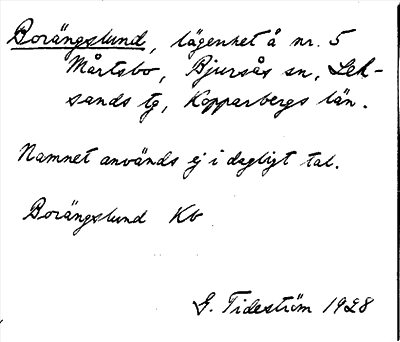 Borängslund, lägenhet å nr. 5
Mårtsbo, Bjursås sn, Lek-
sands tg, Kopparbergs län.
Namnet används ej i dagligt tal.
Borängslund Kb
G. Tideström 1928